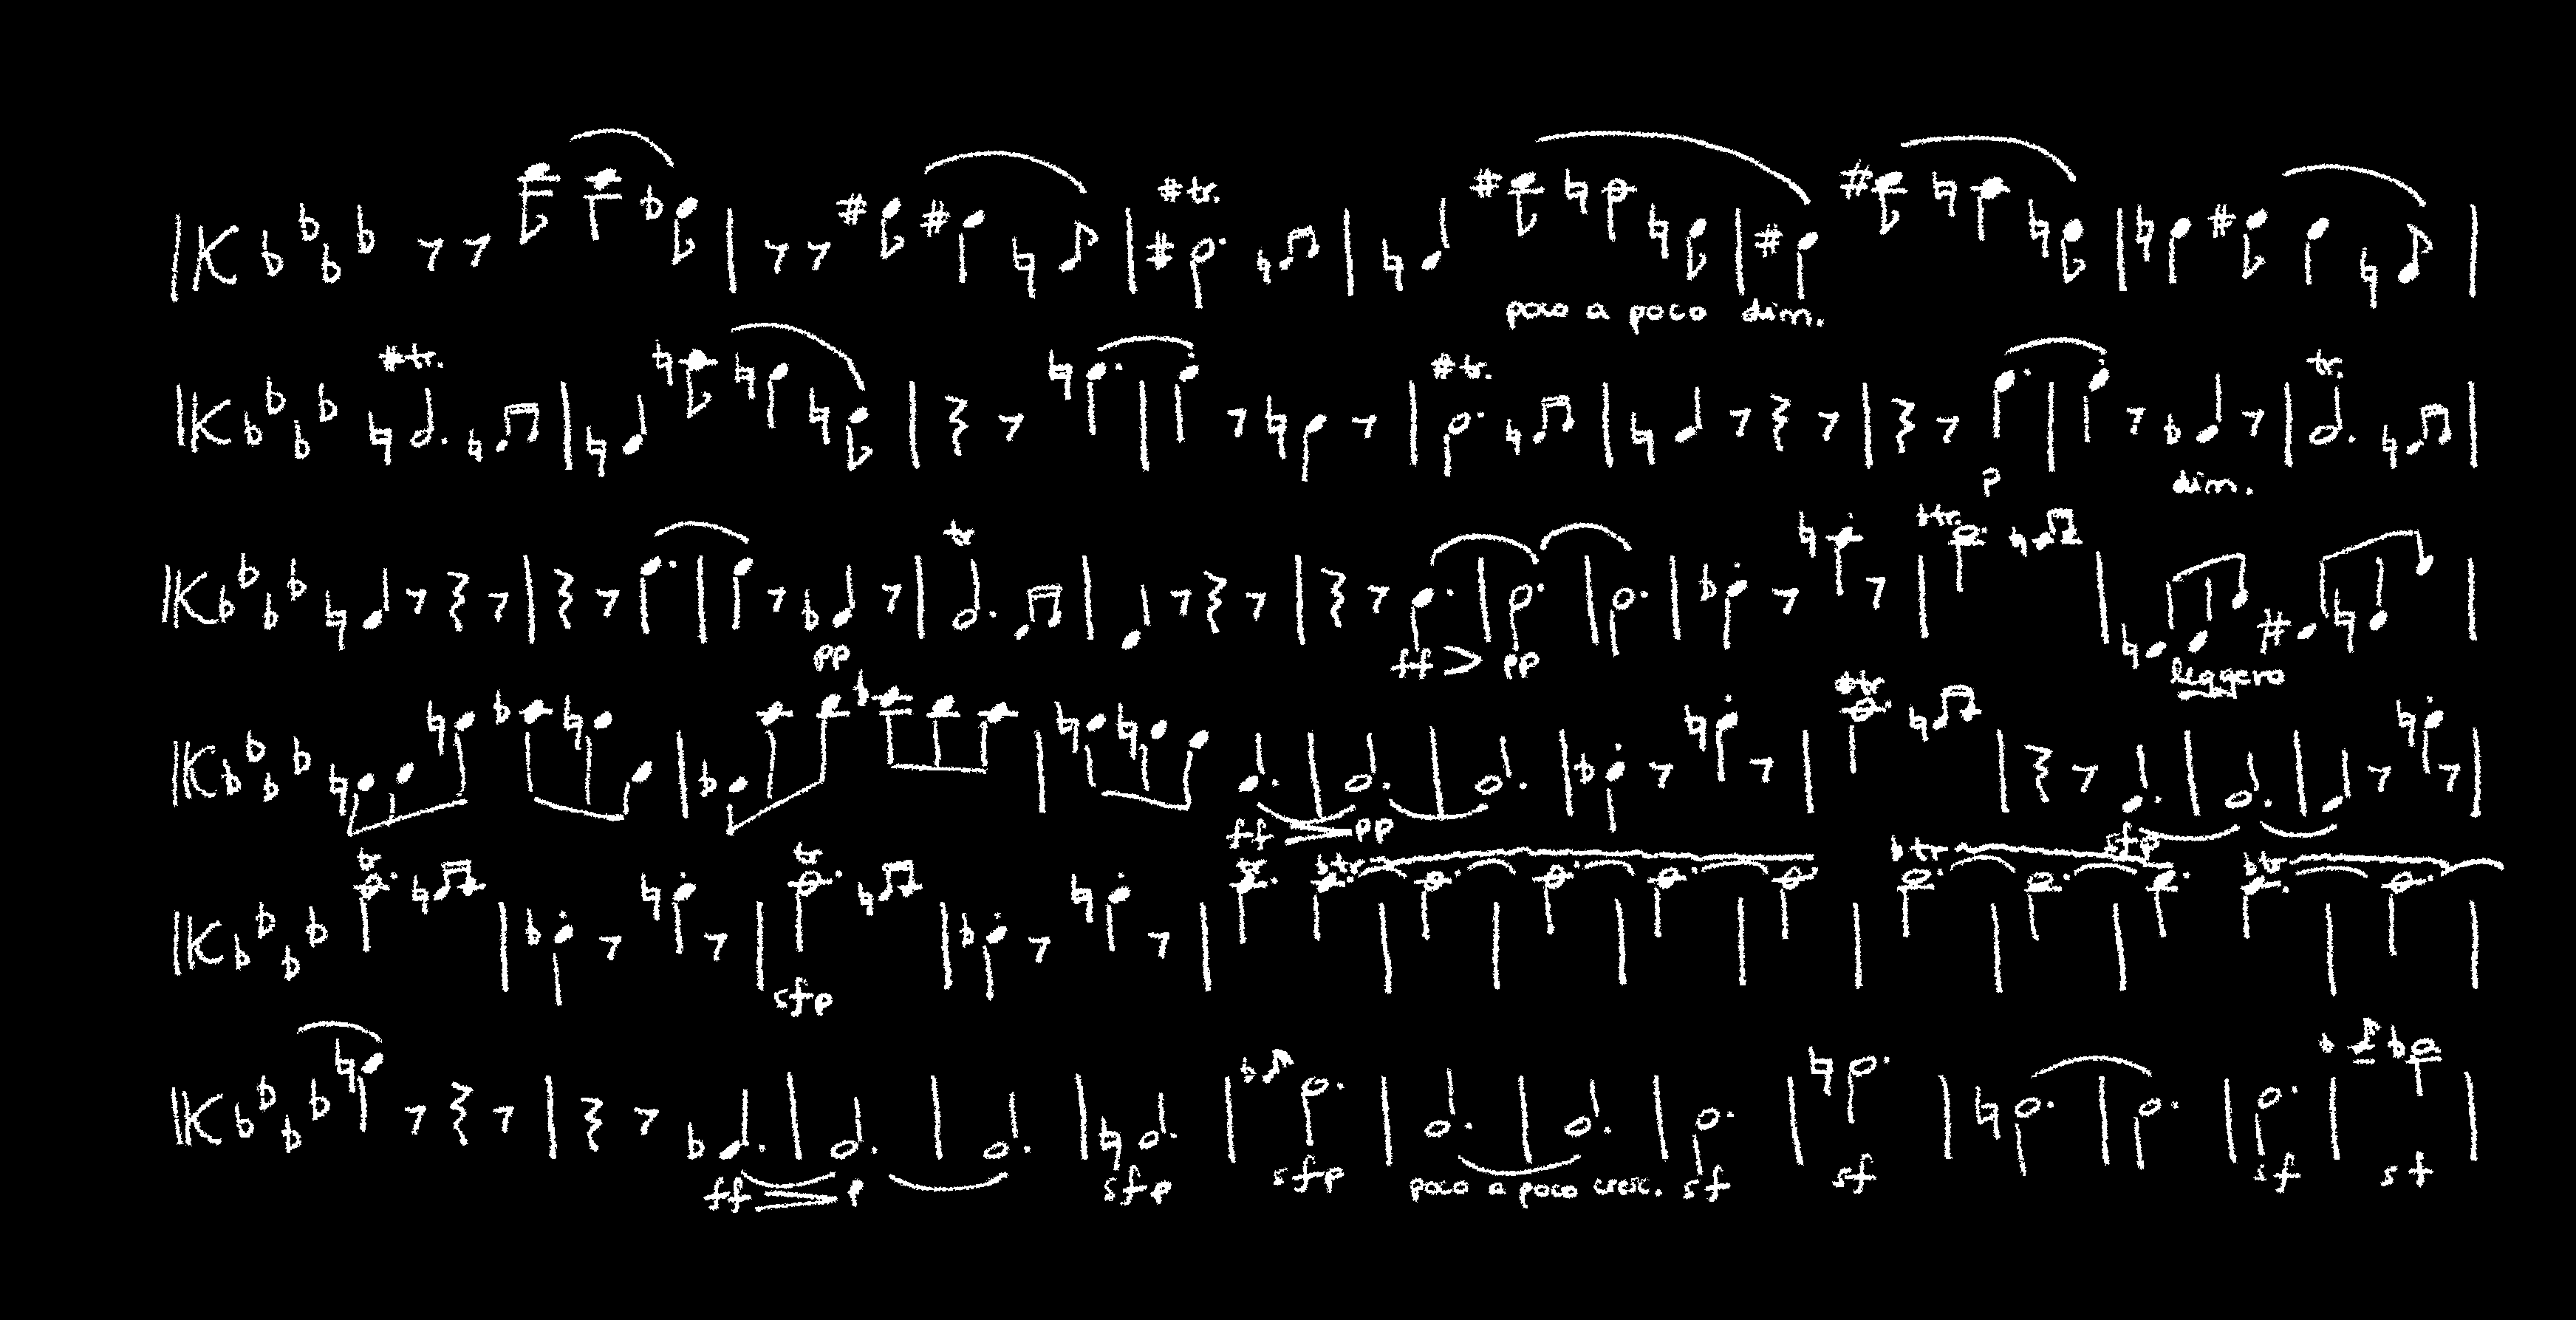 tr.
poco a poco dim.
tr. tr. tr.
p dim.
tr tr.
pp ff pp leggero
tr
ff pp sfp
tr tr tr tr tr tr
sfp
ff p sfp sfp poco a poco cresc. sf sf sf sf